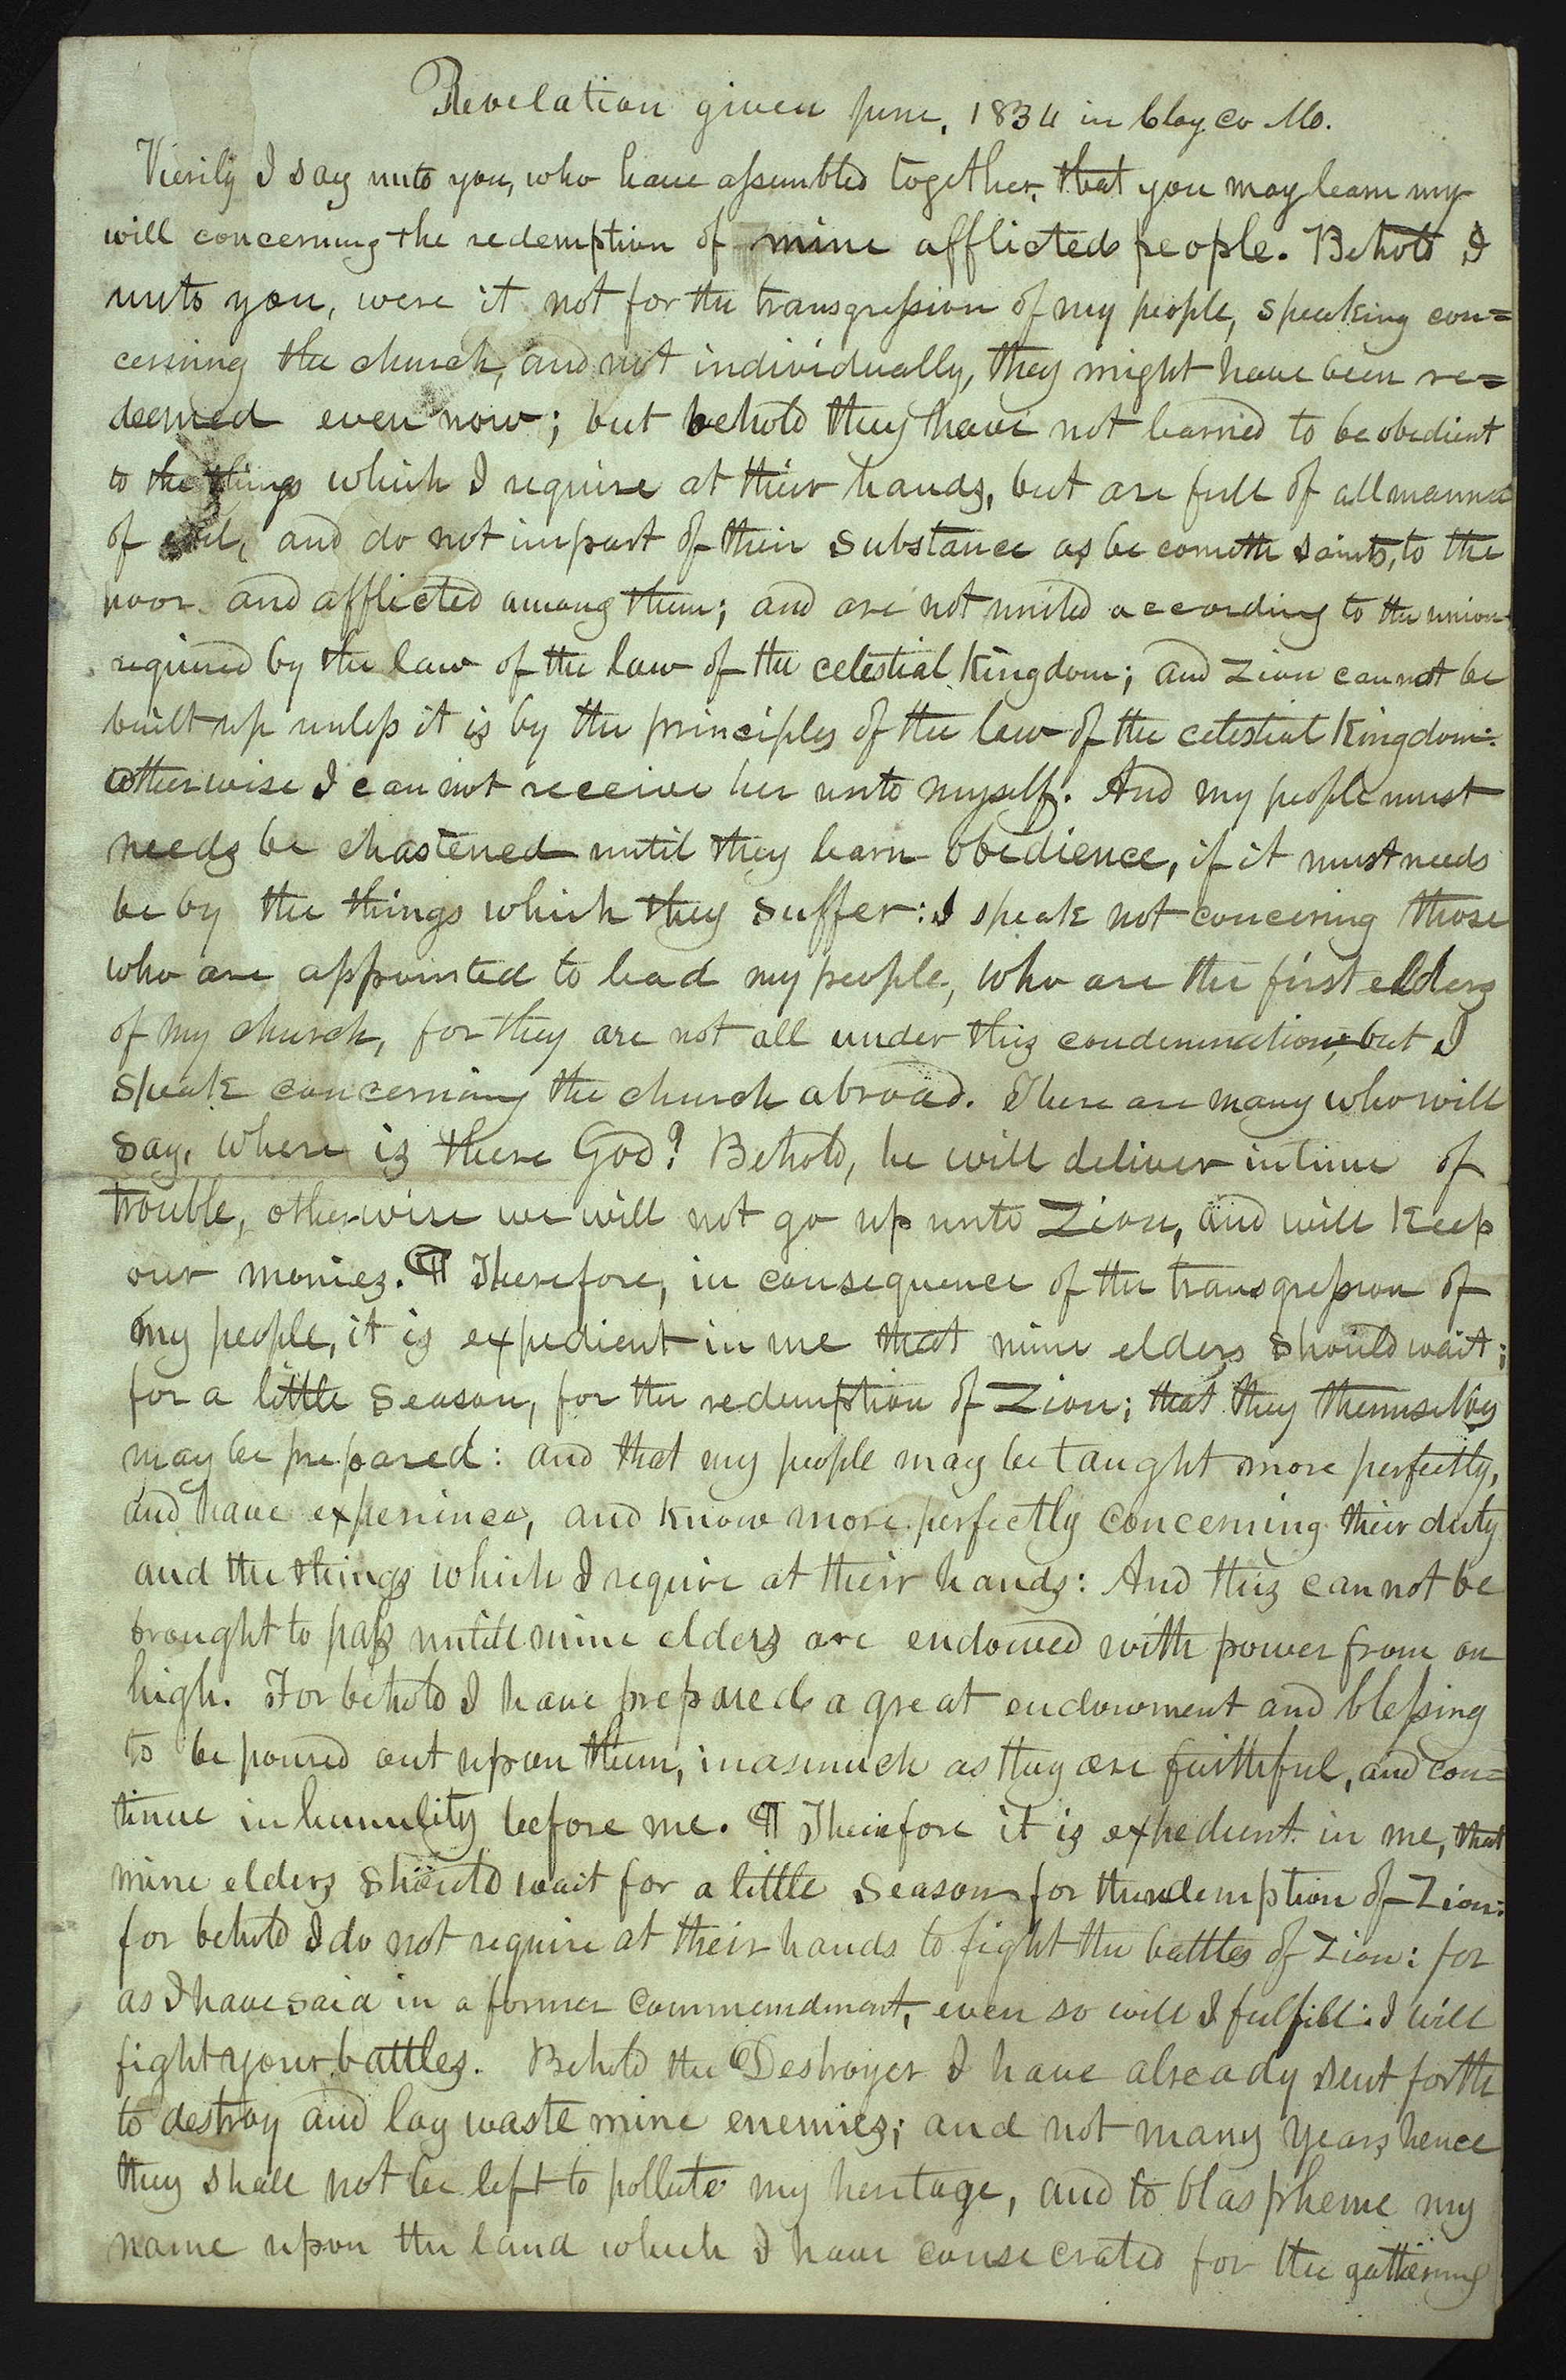 Revelation given June, 1834 in Clay Co Mo.
Vierily I say unto you, who have assembled together, that you may learn my
will concerning the redemption of mine afflicted people. Behold I
unto you, were it not for the transgression of my people, speaking con=
cerning the church, and not individually, they might have been re=
deemed even now; but behold they have not learned to be obedient
to the things which I require at their hands, but are full of all manner
of evil, and do not impart of their substance as becometh saints, to the
poor and afflicted among them; and are not united according to the union
required by the law of the law of the celestial Kingdom; and Zion cannot be
built up unless it is by the principles of the law of the celestial Kingdom:
otherwise I can not receive her unto myself. And my people must
needs be chastened until they learn obedience, if it must needs
be by the things which they suffer: I speak not concering those
who are appointed to lead my people, who are the first elders
of my church, for they are not all under this condemnation; but I
speak concerning the church abroad. There are many who will
say, where is there God? Behold, he will deliver in time of
trouble, otherwise we will not go up unto Zion, and will keep
our monies. ¶ Therefore, in consequence of the transgression of
my people, it is expedient in me that mine elders should wait;
for a little season, for the redemption of Zion; that they themselves
may be prepared: and that my people may be taught more perfectly,
and have experience, and know more perfectly concerning their duty
and the things which I require at their hands: And this can not be
brought to pass untill mine elders are endowed with power from on
high. For behold I have prepared a great endowment and blessing
to be poured out upon them, inasmuch as they are faithful, and con=
tinue in humility before me. ¶ Therefore it is expedient in me, that
mine elders should wait for a little season for the redemption of Zion:
for behold I do not require at their hands to fight the battles of Zion: for
as I have said in a former commendment, even so will I fulfill: I will
fight your battles. Behold the Destroyer I have already sent forth
to destroy and lay waste mine enemies; and not many years hence
they shall not be left to pollute my heritage, and to blaspheme my
name upon the land which I have consecrated for the gathering